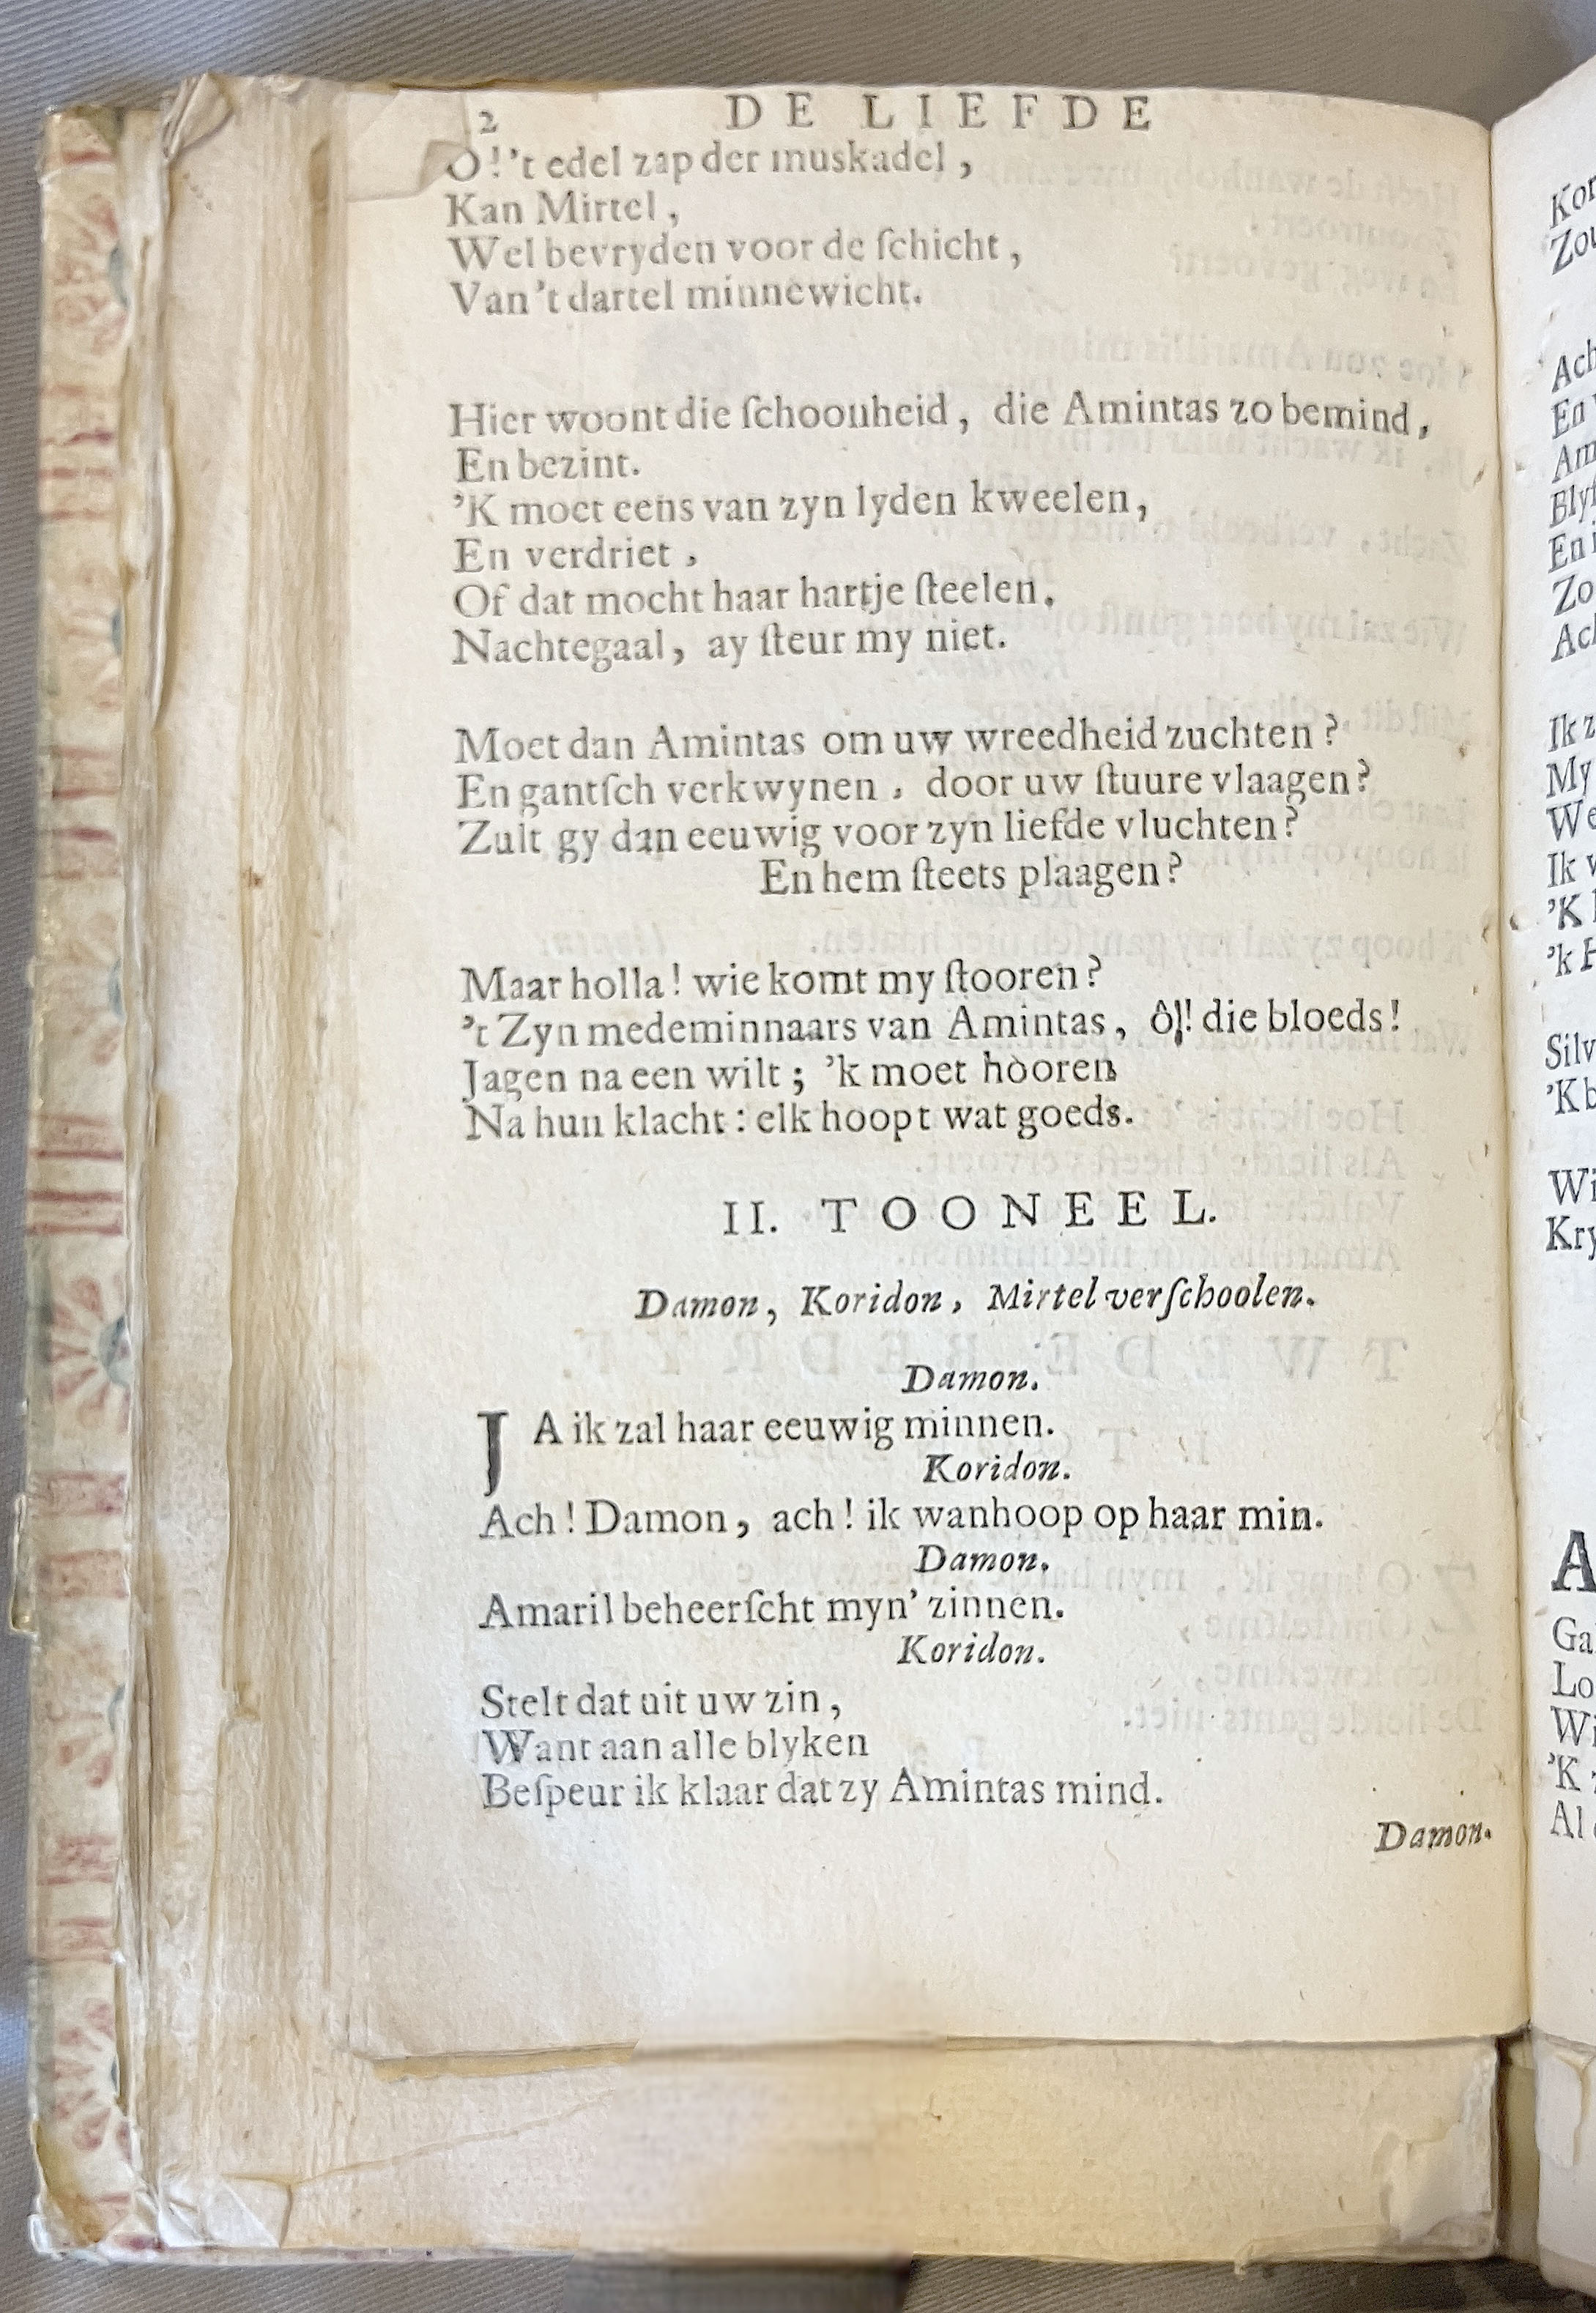 2 DE LIEFDE
O! 't edel zap der muskadel,
Kan Mirtel,
Wel bevryden voor de ſchicht,
Van 't dartel minnewicht.
Hier woont die ſchoonheid, die Amintas zo bemind,
En bezint.
'K moet eens van zyn lyden kweelen,
En verdriet,
Of dat mocht haar hartje ſteelen.
Nachtegaal, ay ſteur my niet.
Moet dan Amintas om uw wreedheid zuchten?
En gantſch verkwynen, door uw ſtuure vlaagen?
Zult gy dan eeuwig voor zyn liefde vluchten?
En hem ſteets plaagen?
Maar holla! wie komt my ſtooren?
't Zyn medeminnaars van Amintas, ôl! die bloeds!
Jagen na een wilt; 'k moet hooren
Na hun klacht: elk hoopt wat goeds.
II. TOONEEL.
Damon, Koridon, Mirtel verſchoolen.
Damon.
JA ik zal haar eeuwig minnen.
Koridon.
Ach! Damon, ach! ik wanhoop op haar min.
Damon.
Amaril beheerſcht myn' zinnen.
Koridon.
Stelt dat uit uw zin,
Want aan alle blyken
Beſpeur ik klaar dat zy Amintas mind.
Damon.
Ach
En
Blyf
En
Zo
Ik
My
We
Ik
'K
'k
Silv
'K
Wi
Kry
A
Ga
Lo
Wi
'K
Al